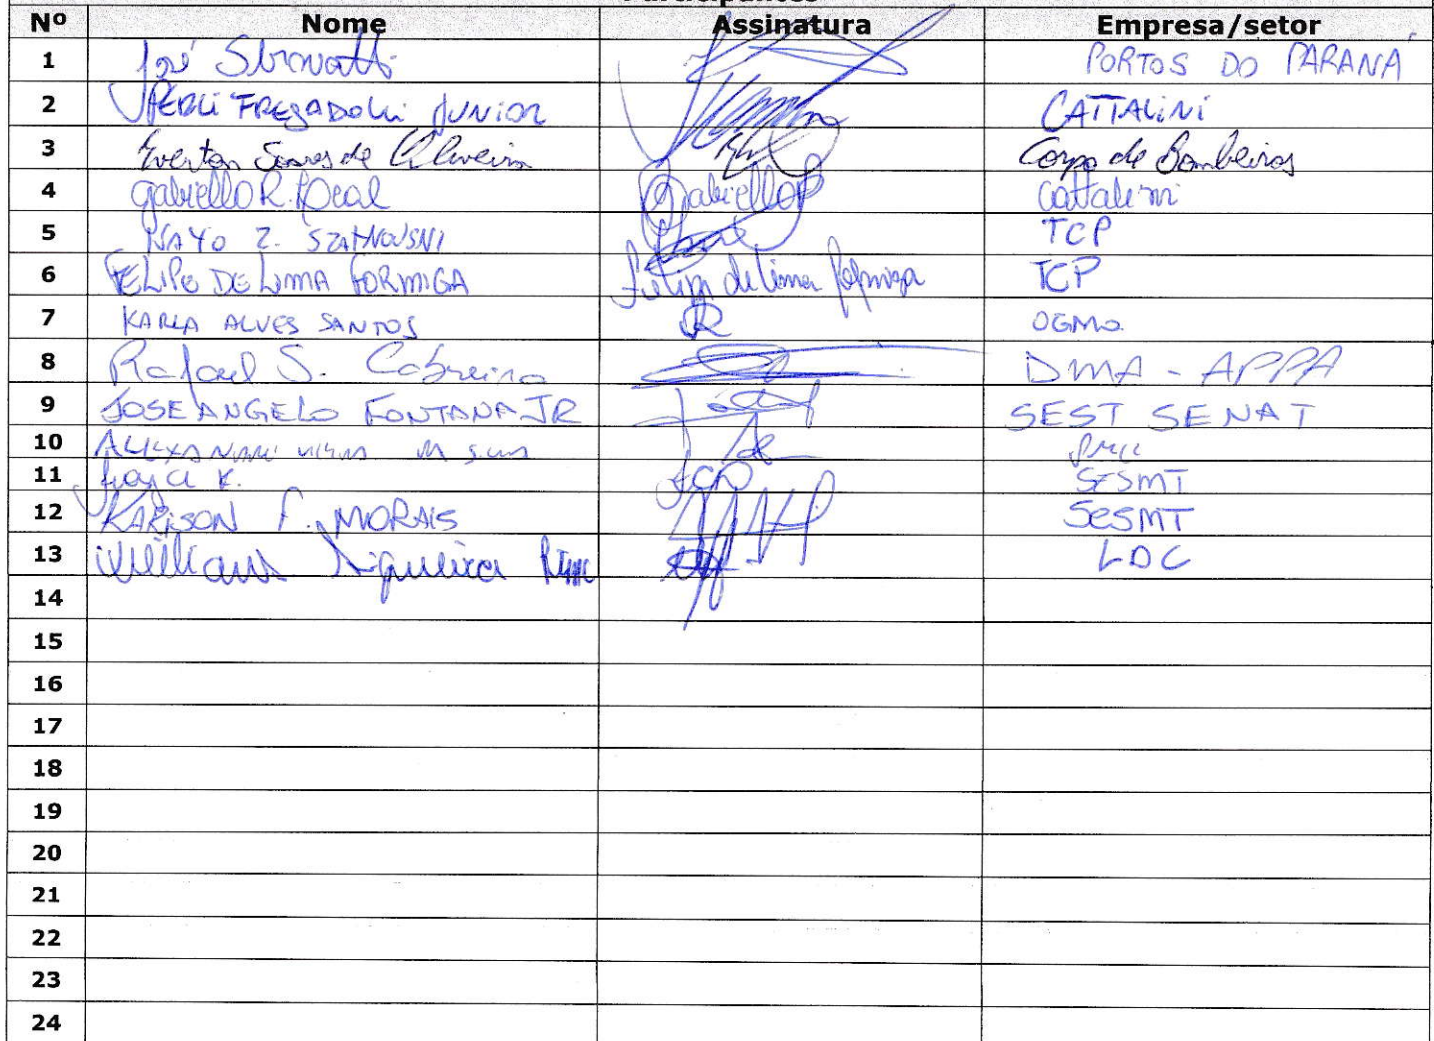 Participantes
Nº Nome Assinatura Empresa/setor
1 José Sbravatti PORTOS DO PARANÁ
2 PERLI FREGADOLLI JUNIOR CATTALINI
3 Everton Soares de Oliveira Corpo de Bombeiros
4 Gabriello R. Gabriello Cattalini
5 TCP
6 FELIPE DE LIMA FORMIGA Felipe de Lima Formiga TCP
7 KARLA ALVES SANTOS OGMO
8 Rafael S. Cabreira DMA - APPA
9 JOSE ANGELO FONTANA JR SEST SENAT
10
11 K. SESMT
12 KARISON F. MORAIS SESMT
13 Willians Siqueira LDC
14
15
16
17
18
19
20
21
22
23
24